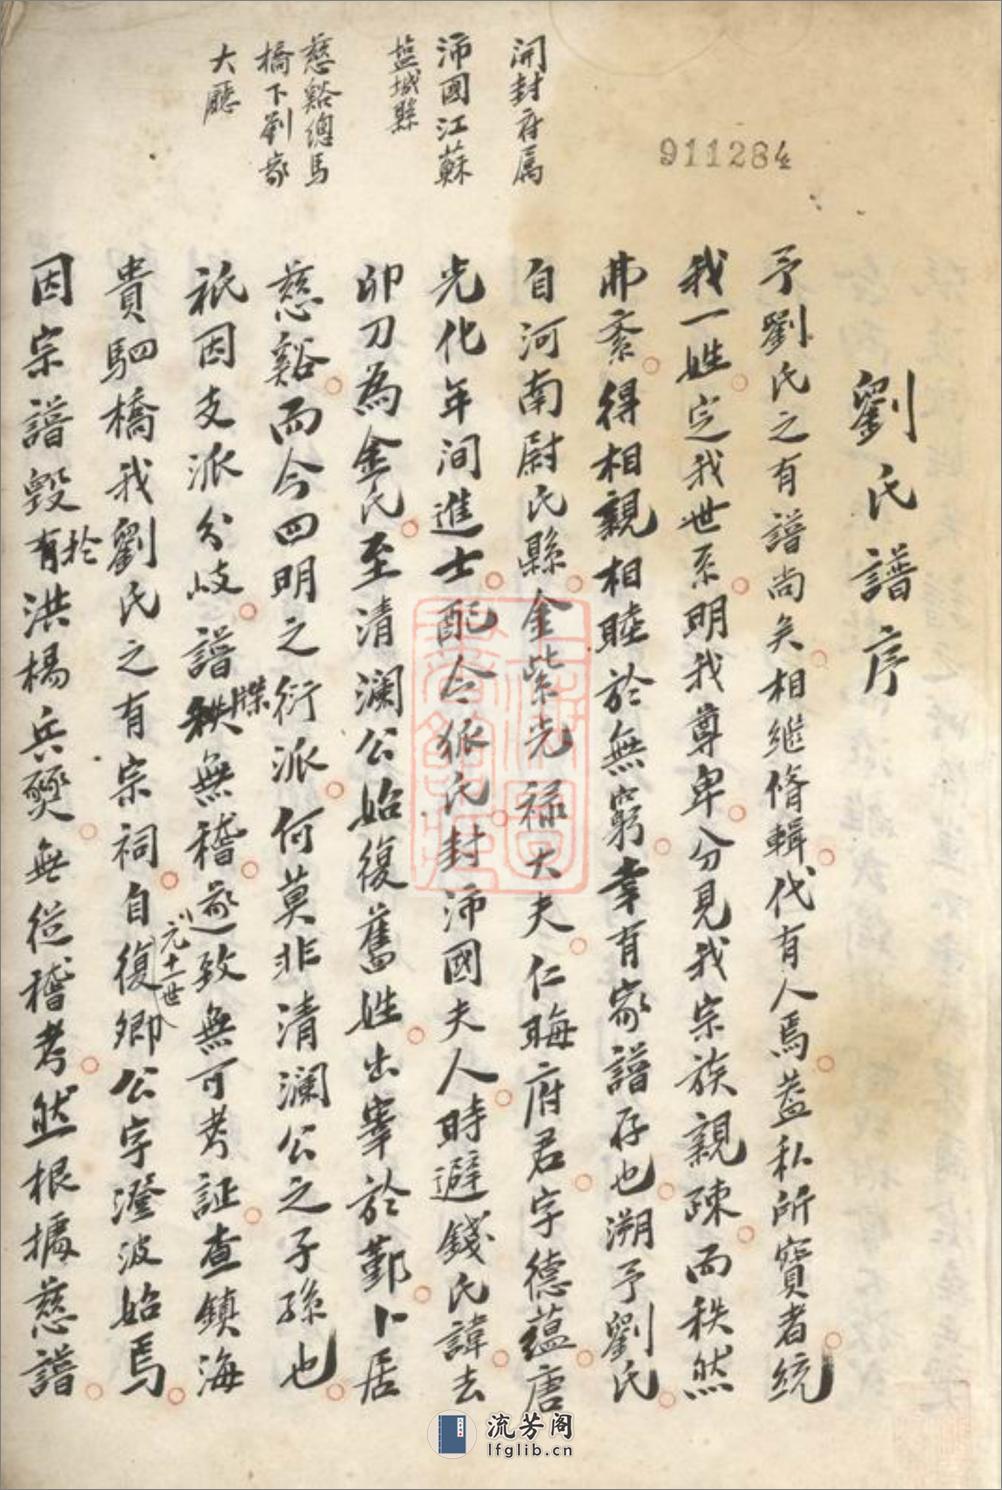 911284
開封府属
沛國江蘇
盐城縣
慈谿總馬
橋下刘家
大廳
劉氏譜序
予劉氏之有譜尚矣相継脩輯代有人焉葢私所寶者統
我一姓定我世系明我尊卑分見我宗族親踈而秩然
弗紊得相親相睦於無窮幸有家譜存也溯予劉氏
自河南尉氏縣金紫光禄大夫仁晦府君字德蕴唐
光化年间進士配令狐氏封沛國夫人時避錢氏諱去
卯刀為金氏至清澜公始復舊姓出宰於鄞卜居
慈谿而今四明之衍派何莫非清澜公之子孫也
祇因支派分岐譜牒無稽遂致無可考証查鎮海
貴駟橋我劉氏之有宗祠自元十一世復卿公字澄波始焉
因宗譜毀於有洪楊兵燹無從稽考然根據慈譜
流芳阁
lfglib.cn